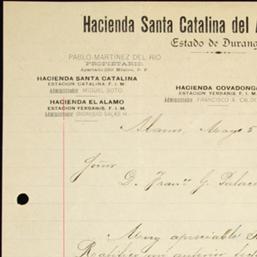 Hacienda Santa Catalina del A
Estado de Durang
PABLO MARTINEZ DEL RIO
PROPIETARIO.
HACIENDA SANTA CATALINA
ESTACION CATALINA F. I. M.
ADMINISTRADOR MIGUEL SOTO
HACIENDA COVADONG
ESTACION YERBANIS, F. I. M
ADMINISTRADOR FRANCISCO A. CAL DE
HACIENDA EL ALAMO
ESTACION YERBANIS. F. I. M.
ADMINISTRADOR DIONISIO SALAS H.
Alamo, Mayo 5
Señor
D. Franco G. Palaci
Muy apreciable
Ratifico mi anterior